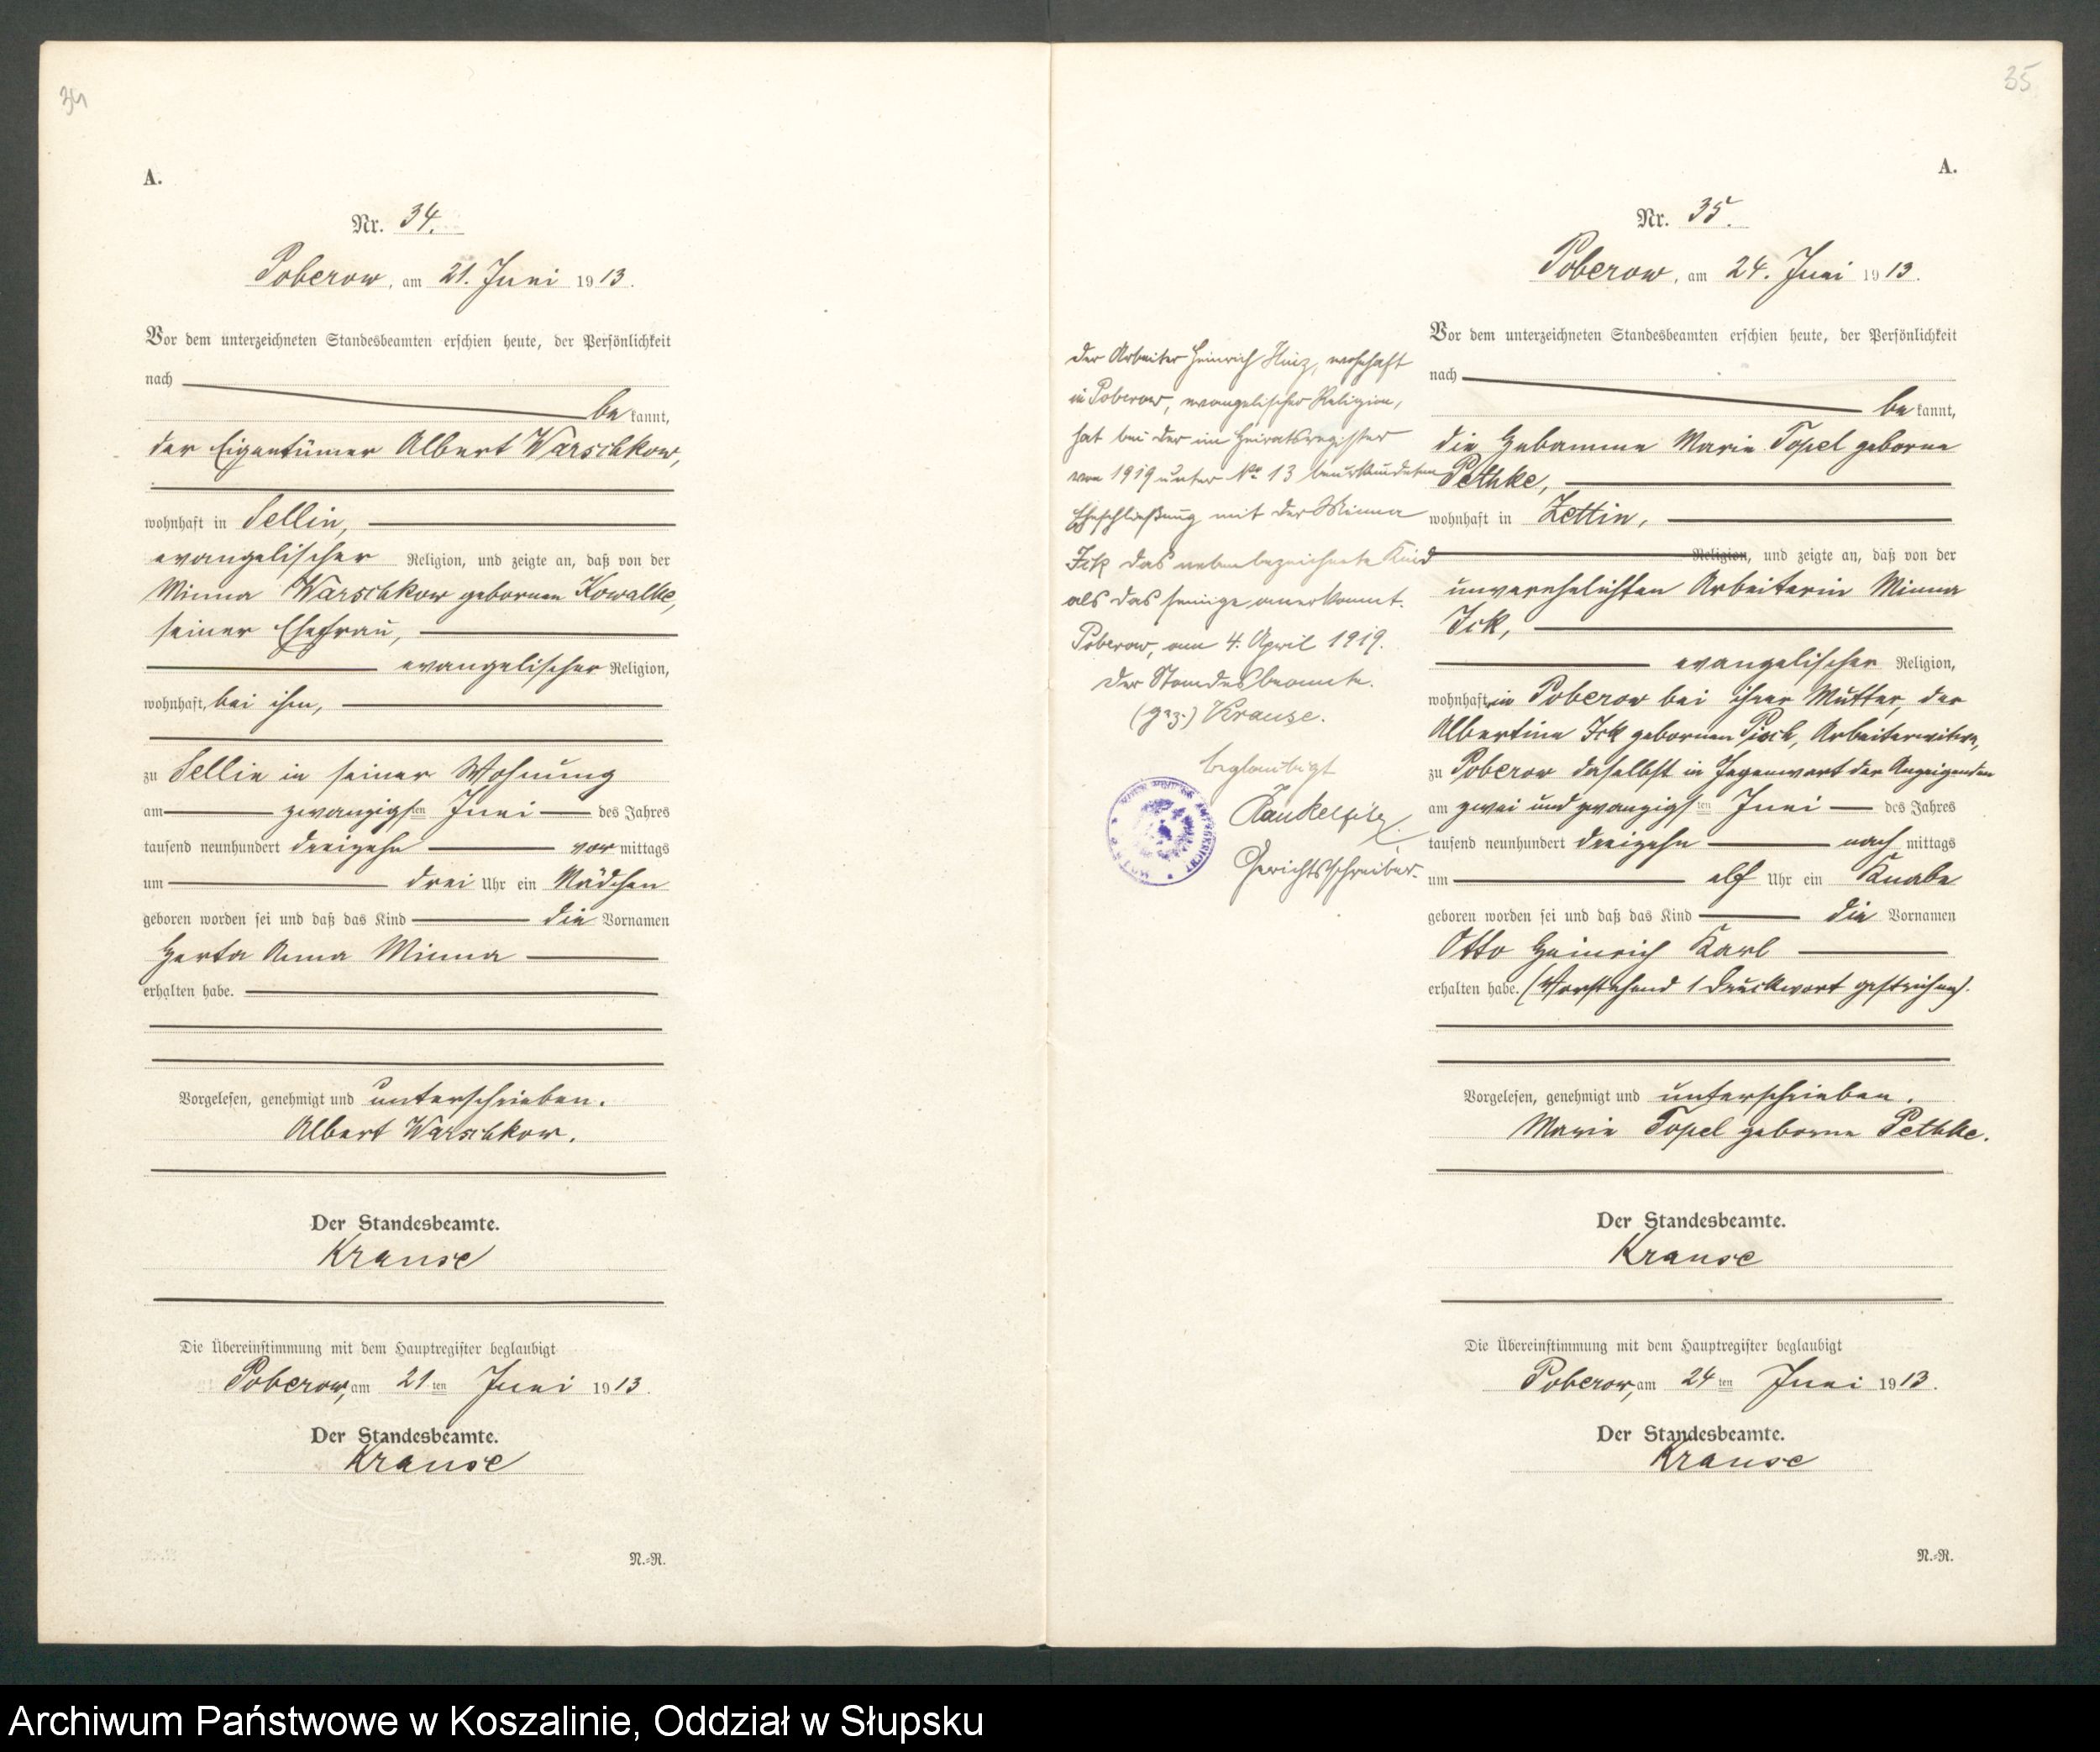 34
A.
Nr. 34.
Poberow, am 21. Juni 1913.
Vor dem unterzeichneten Standesbeamten erschien heute, der Persönlichkeit
nach
bekannt,
der Eigentümer Albert Warschkow,
wohnhaft in Sellin,
evangelischer Religion, und zeigte an, daß von der
Minna Warschkow gebornen Kowalke,
seiner Ehefrau,
evangelischer Religion,
wohnhaft bei ihm,
zu Sellin in seiner Wohnung
am zwanzigsten Juni des Jahres
tausend neunhundert dreizehn vormittags
um drei Uhr ein Mädchen
geboren worden sei und daß das Kind die Vornamen
Herta Anna Minna
erhalten habe.
Vorgelesen, genehmigt und unterschrieben.
Albert Warschkow.
Der Standesbeamte.
Krause
Die Übereinstimmung mit dem Hauptregister beglaubigt
Poberow, am 21ten Juni 1913.
Der Standesbeamte.
Krause
N.-R.
35
A.
Nr. 35.
Poberow, am 24. Juni 1913.
Vor dem unterzeichneten Standesbeamten erschien heute, der Persönlichkeit
nach
bekannt,
die Hebamme Marie Topel geborne
Pethke,
wohnhaft in Zettin,
Religion, und zeigte an, daß von der
unverehelichten Arbeiterin Minna
Ick,
evangelischer Religion,
wohnhaft in Poberow bei ihrer Mutter, der
Albertine Ick gebornen Pioch, Arbeiterwitwe,
zu Poberow daselbst in Gegenwart der Anzeigenden
am zwei und zwanzigsten Juni des Jahres
tausend neunhundert dreizehn nachmittags
um elf Uhr ein Knabe
geboren worden sei und daß das Kind die Vornamen
Otto Heinrich Karl
erhalten habe. (Vorstehend 1 Druckwort gestrichen).
Vorgelesen, genehmigt und unterschrieben.
Marie Topel geborne Pethke.
Der Standesbeamte.
Krause
Die Übereinstimmung mit dem Hauptregister beglaubigt
Poberow, am 24ten Juni 1913.
Der Standesbeamte.
Krause
N.-R.
Der Arbeiter Heinrich Hinz, wohnhaft
in Poberow, evangelischer Religion,
hat bei der im Heiratsregister
von 1919 unter No 13 beurkundeten
Eheschließung mit der Minna
Ick das nebenbezeichnete Kind
als das seinige anerkannt.
Poberow, am 4. April 1919.
Der Standesbeamte.
(gez.) Krause.
beglaubigt
Gerichtsschreiber.
Archiwum Państwowe w Koszalinie, Oddział w Słupsku